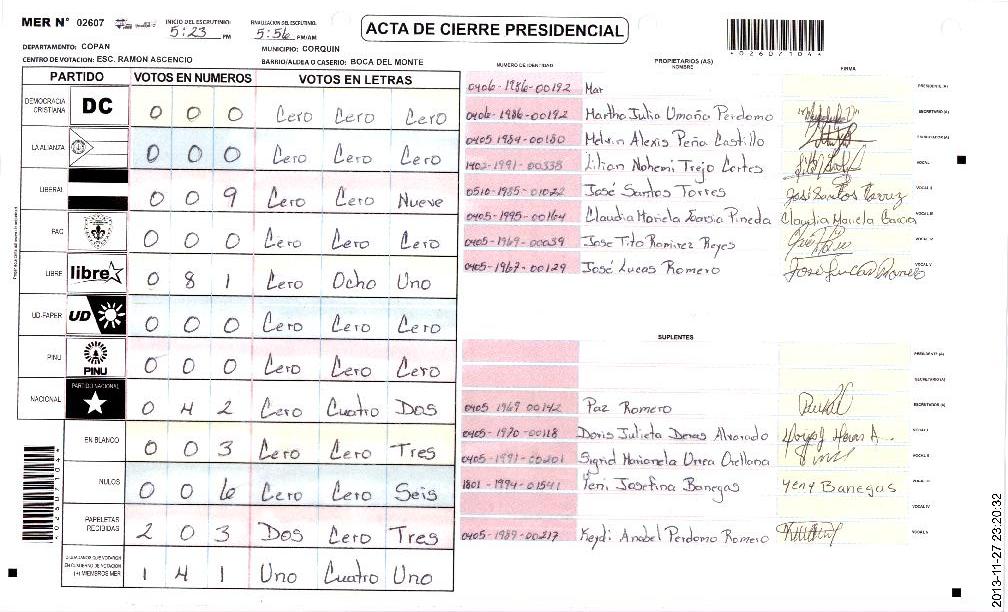 MER N° 02607
INICIO DEL ESCRUTINIO: 5:23 PM
FINALIZACION DEL ESCRUTINIO: 5:56 PM/AM
ACTA DE CIERRE PRESIDENCIAL
*02607104*
DEPARTAMENTO: COPAN
MUNICIPIO: CORQUIN
CENTRO DE VOTACION: ESC. RAMON ASCENCIO
BARRIO/ALDEA O CASERIO: BOCA DEL MONTE
PARTIDO VOTOS EN NUMEROS VOTOS EN LETRAS
DEMOCRACIA CRISTIANA DC 0 0 0 Cero Cero Cero
LA ALIANZA 0 0 0 Cero Cero Cero
LIBERAL 0 0 9 Cero Cero Nueve
PAC 0 0 0 Cero Cero Cero
LIBRE libre 0 8 1 Cero Ocho Uno
UD-FAPER UD 0 0 0 Cero Cero Cero
PINU PINU 0 0 0 Cero Cero Cero
NACIONAL PARTIDO NACIONAL 0 4 2 Cero Cuatro Dos
EN BLANCO 0 0 3 Cero Cero Tres
NULOS 0 0 6 Cero Cero Seis
PAPELETAS RECIBIDAS 2 0 3 Dos Cero Tres
CIUDADANOS QUE VOTARON EN CUADERNO DE VOTACION (+) MIEMBROS MER 1 4 1 Uno Cuatro Uno
NUMERO DE IDENTIDAD PROPIETARIOS (AS) NOMBRE FIRMA
0406-1986-00192 Mar PRESIDENTE (A)
0406-1986-00192 Martha Julia Umaña Perdomo SECRETARIO (A)
0405-1984-00180 Melvin Alexis Peña Castillo ESCRUTADOR (A)
1402-1991-00338 Lilian Nohemi Trejo Cortes VOCAL I
0510-1985-01022 José Santos Torres José Santos Torrez VOCAL II
0405-1995-00164 Claudia Mariela Garcia Pineda Claudia Mariela Garcia VOCAL III
0405-1969-00039 Jose Tito Ramirez Reyes VOCAL IV
0405-1967-00129 José Lucas Romero Jose Lucas Romero VOCAL V
SUPLENTES
PRESIDENTE (A)
SECRETARIO (A)
0405 1969 00142 Paz Romero ESCRUTADOR (A)
0405-1970-00118 Doris Julieta Deras Alvarado VOCAL I
0405-1991-00201 Sigrid Marionela Urrea Orellana VOCAL II
1801-1994-01541 Yeni Josefina Banegas Yeny Banegas VOCAL III
VOCAL IV
0405-1989-00217 Keydi Anabel Perdomo Romero VOCAL V
*02607104*
2013-11-27 23:20:32